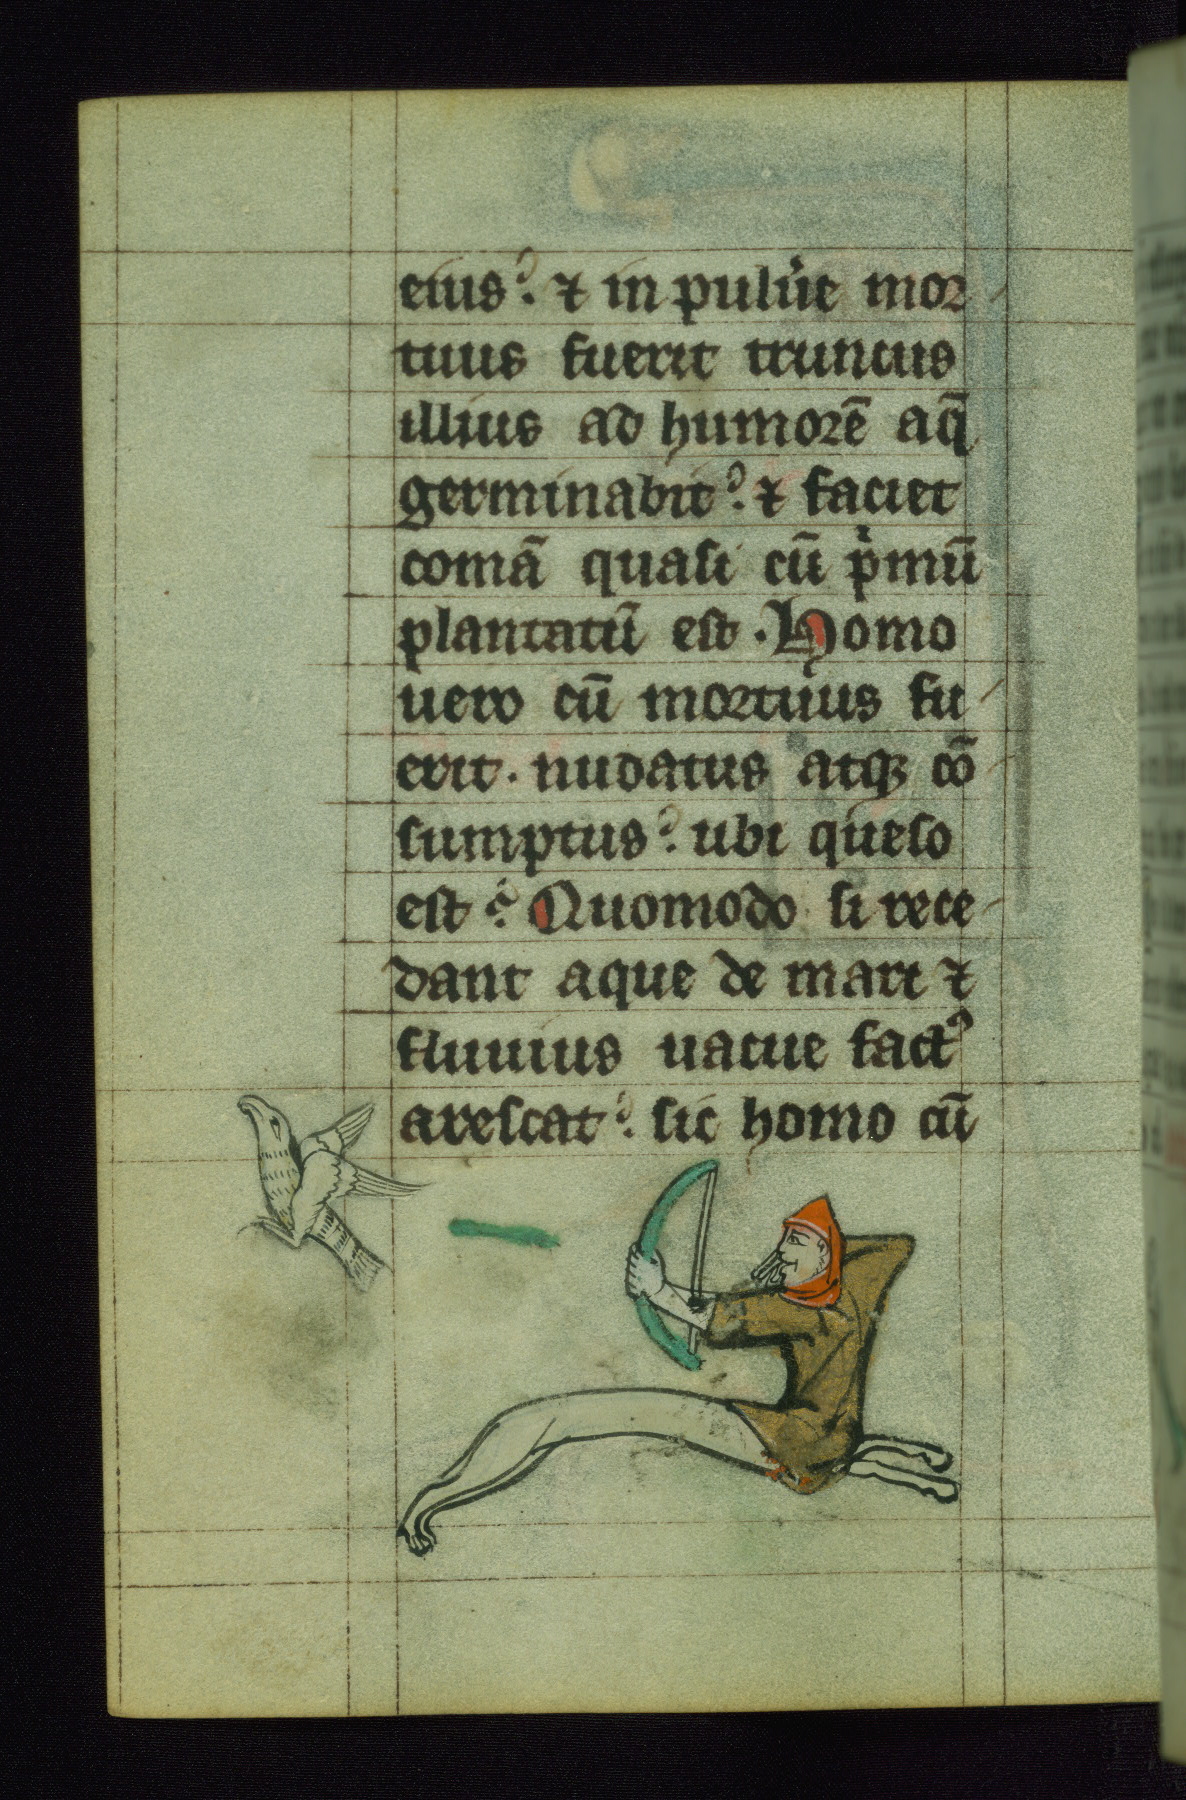 eius? ⁊ in pulu̾e mor
tuus fuerit truncus
illius ad humorē aq̄
germinabit? ⁊ faciet
comā quasi cū pͥmū
plantatū est . Homo
uero cū mortuus fu
erit . nudatus atqꝫ cō
sumptus? ubi queso
est? Quomodo si rece
dant aque de mari ⁊
fluuius uacue fact᾿
arescat? sic homo cū